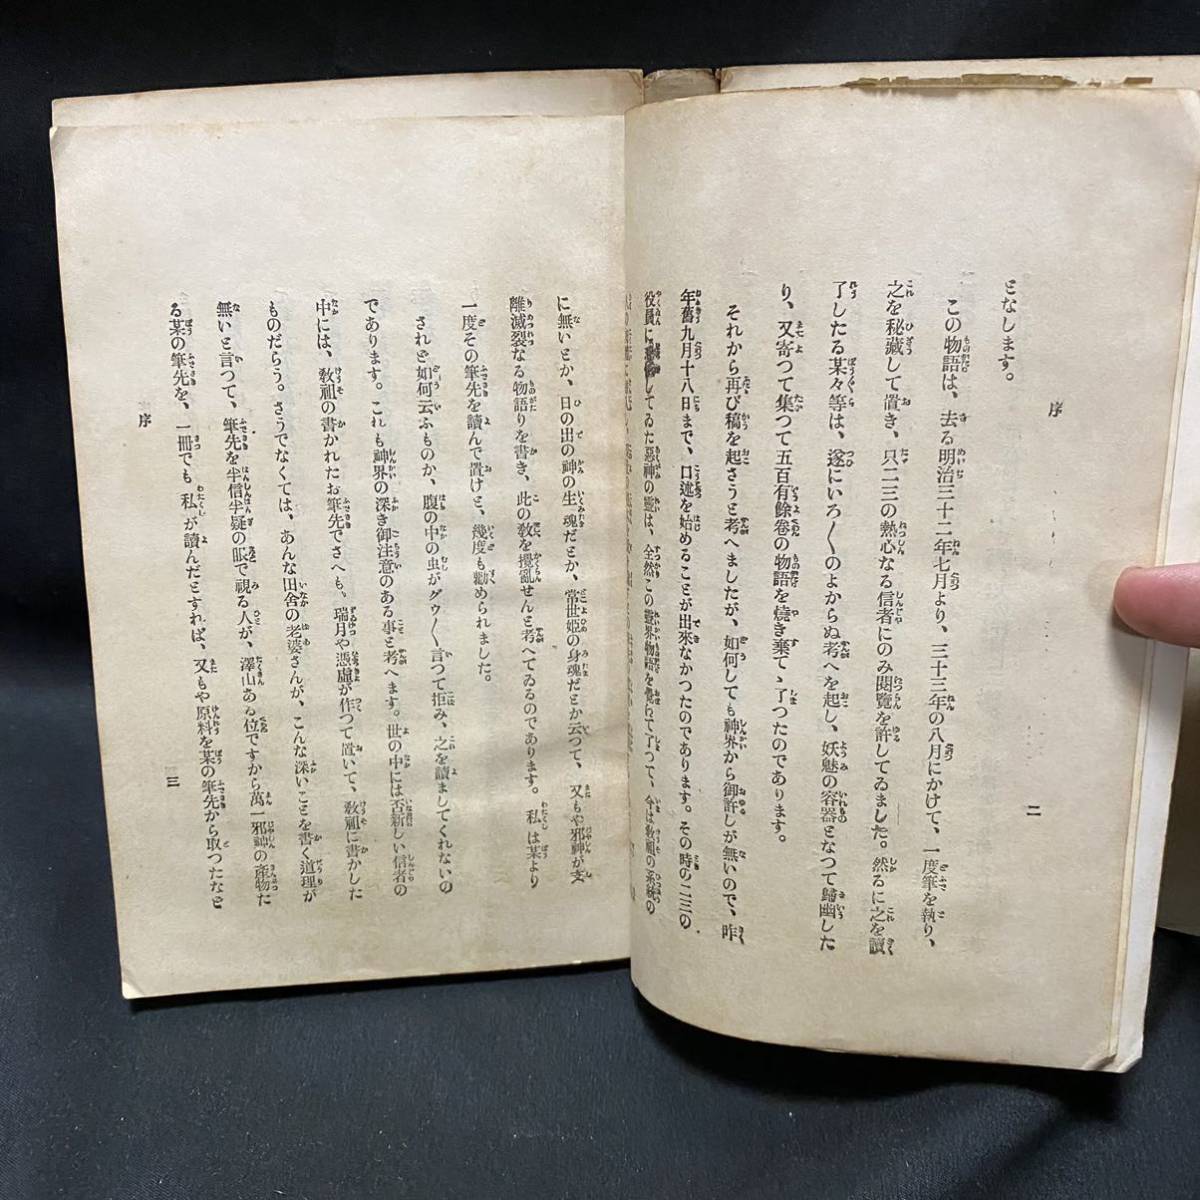 序
二
となします。
この物語は、去る明治三十二年七月より、三十三年の八月にかけて、一度筆を執り、
之を秘藏して置き、只二三の熱心なる信者にのみ閲覽を許してゐました。然るに之を讀
了したる某々等は、遂にいろ〱のよからぬ考へを起し、妖魅の容器となつて歸幽した
り、又寄つて集つて五百有餘卷の物語を燒き棄てゝ了つたのであります。
それから再び稿を起さうと考へましたが、如何しても神界から御許しが無いので、昨
年舊九月十八日まで、口述を始めることが出來なかつたのであります。その時の二三の
役員に憑依してゐた惡神の靈は、全然この靈界物語を覺えて了つて、今は敎祖の系統の
に無いとか、日の出の神の生魂だとか、常世姬の身魂だとか云つて、又もや邪神が支
離滅裂なる物語りを書き、此の敎を攪亂せんと考へてゐるのであります。私は某より
一度その筆先を讀んで置けと、幾度も勸められました。
されど如何云ふものか、腹の中の虫がグウ〱言つて拒み、之を讀ましてくれないの
であります。これも神界の深き御注意のある事と考へます。世の中には否新しい信者の
中には、敎祖の書かれたお筆先でさへも、瑞月や憑虛が作つて置いて、敎祖に書かした
ものだらう。さうでなくては、あんな田舍の老婆さんが、こんな深いことを書く道理が
無いと言つて、筆先を半信半疑の眼で視る人が、澤山ある位ですから萬一邪神の產物た
る某の筆先を、一冊でも私が讀んだとすれば、又もや原料を某の筆先から取つたなど
序
三